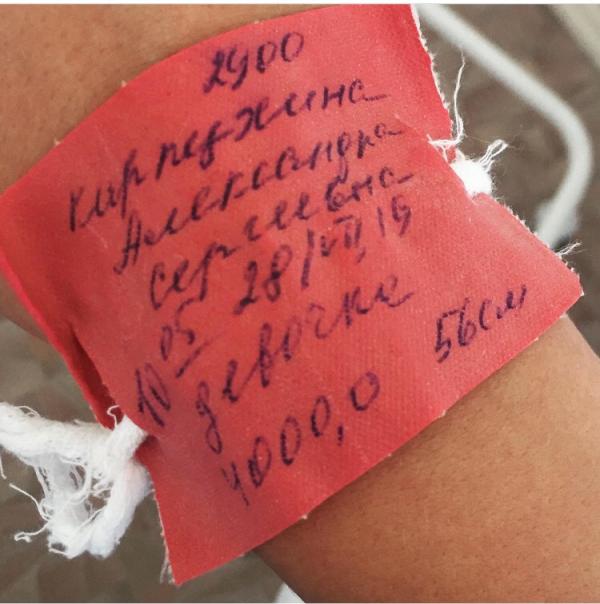 2900
Кирпежина
Александра
Сергеевна
10 05 28/VII,19
девочка
4000,0 56см